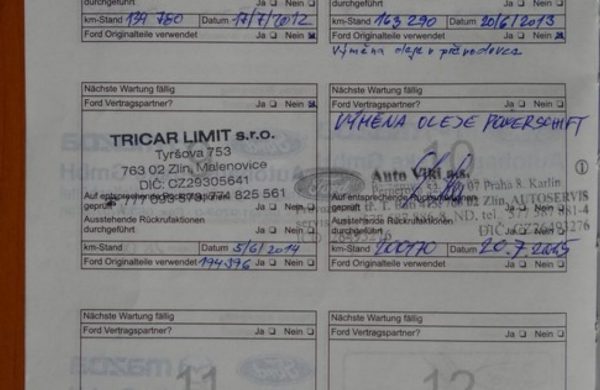 durchgeführt Ja Nein
km-Stand 139 780 Datum 17/7/2012
Ford Originalteile verwendet Ja Nein
durchgeführt Ja Nein
km-Stand 163 290 Datum 20/6/2013
Ford Originalteile verwendet Ja Nein
Výměna oleje v převodovce
Nächste Wartung fällig
Ford Vertragspartner? Ja Nein
TRICAR LIMIT s.r.o.
Tyršova 753
763 02 Zlín, Malenovice
DIČ: CZ29305641
774 825 561
Auf entsprechende
geprüft
Ausstehende Rückrufaktionen
durchgeführt Ja Nein
km-Stand Datum 5/6/2014
Ford Originalteile verwendet 194396 Ja Nein
Nächste Wartung fällig
Ford Vertragspartner? Ja Nein
VÝMĚNA OLEJE POWERSHIFT
10
Auto Viki
07 Praha 8, Karlín
02 Zlín, AUTOSERVIS
ND, tel.
Auf entsprechende
geprüft
Ausstehende Rückrufaktionen
durchgeführt Ja Nein
km-Stand 200170 Datum 20.7.2015
Ford Originalteile verwendet Ja Nein
1
Nächste Wartung fällig
Ford Vertragspartner? Ja Nein
11
Nächste Wartung fällig
Ford Vertragspartner? Ja Nein
12